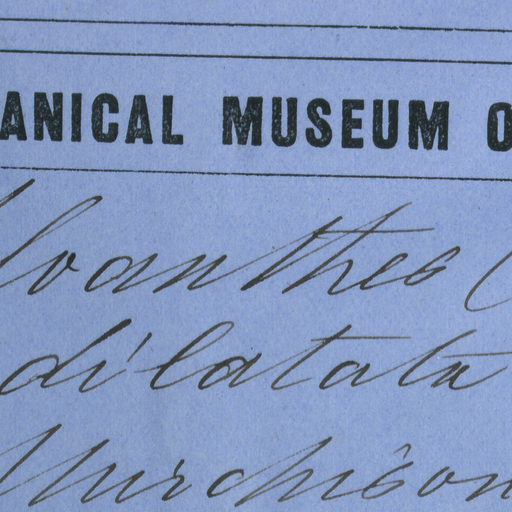 ANICAL MUSEUM O
oanthes (
dilatata
Murchison